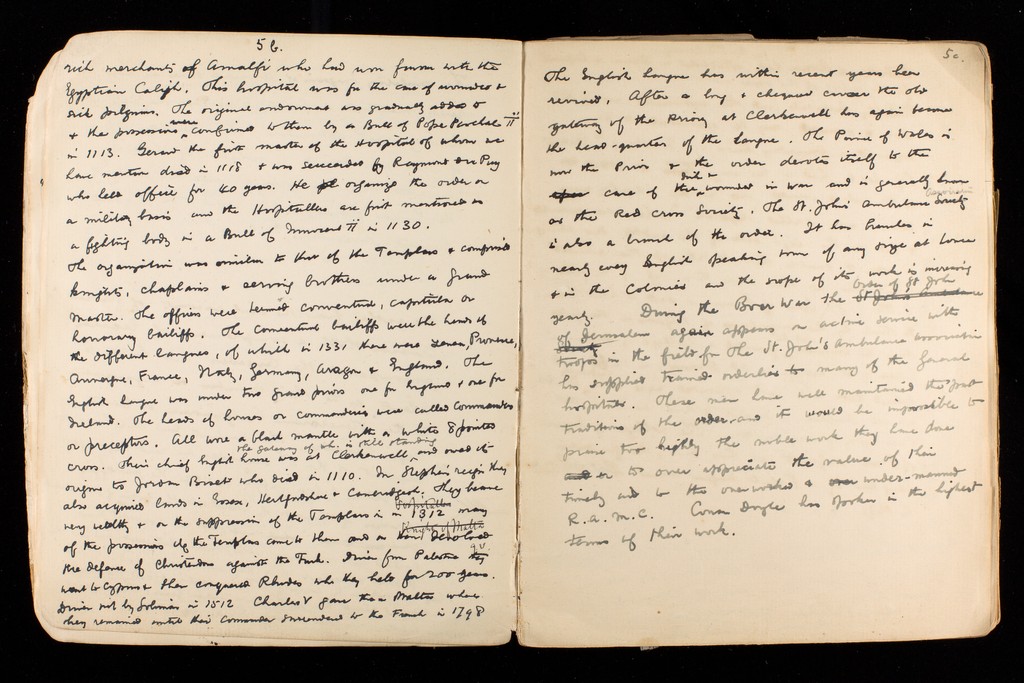 5b.
rich merchants of Amalfi who had won favour with the
Egyptian Caliph. This hospital was for the care of wounded &
sick pilgrims. The original endowment was gradually added to
& the possessions were confirmed to them by a Bull of Pope Paschal II
in 1113. Gerard the first master of the Hospital of whom we
have mention died in 1118 & was succeeded by Raymond du Puy
who held office for 40 years. He organized the order on
a military basis and the Hospitallers are first mentioned as
a fighting body in a Bull of Innocent II in 1130.
The organization was similar to that of the Templars & comprised
Knights, chaplains & serving brothers under a Grand
Master. The officers were termed conventual, capitular or
honorary bailiffs. The Conventual bailiffs were the heads of
the different langues, of which in 1331 there were seven, Provence,
Auvergne, France, Italy, Germany, Aragon & England. The
English langue was under two Grand priors one for England & one for
Ireland. The heads of houses or commanderies were called Commanders
or preceptors. All wore a black mantle with a white 8 pointed
cross. Their chief English house was at Clerkenwell the gateway of wh. is still standing and owed its
origin to Jordan Briset who died in 1110. In Stephen's reign they
also acquired lands in Essex, Hertfordshire & Cambridgesh. They became
very wealthy & on the suppression of the Templars in 1312 many
of the possessions of the Templars came to them and
the defence of Christendom against the Turk. Driven from Palestine they
went to Cyprus & then conquered Rhodes who they held for 200 years.
Driven out by Soliman in 1512 Charles V gave them Malta where
they remained until their Commander surrendered to the French in 1798
5c.
The English langue has within recent years been
revived. After a long & chequered career the old
gateway of the Priory at Clerkenwell has again become
the head-quarters of the langue. The Prince of Wales is
now the Prior & the order devotes itself to the
care of the sick & wounded in war and is generally known
as the Red Cross Society. The St. John Ambulance Association
is also a branch of the order. It has branches in
nearly every English speaking town of any size at home
& in the Colonies and the scope of its work is increasing
yearly. During the Boer War the Order of St John
of Jerusalem again appears on active service with
troops in the field for the St. John's ambulance association
has supplied trained orderlies to many of the General
hospitals. These men have well maintained the great
traditions of the order, and it would be impossible to
praise too highly the noble work they have done
or to over appreciate the value of their
timely aid to the overworked & under-manned
R.A.M.C. Conan Doyle has spoken in the highest
terms of their work.